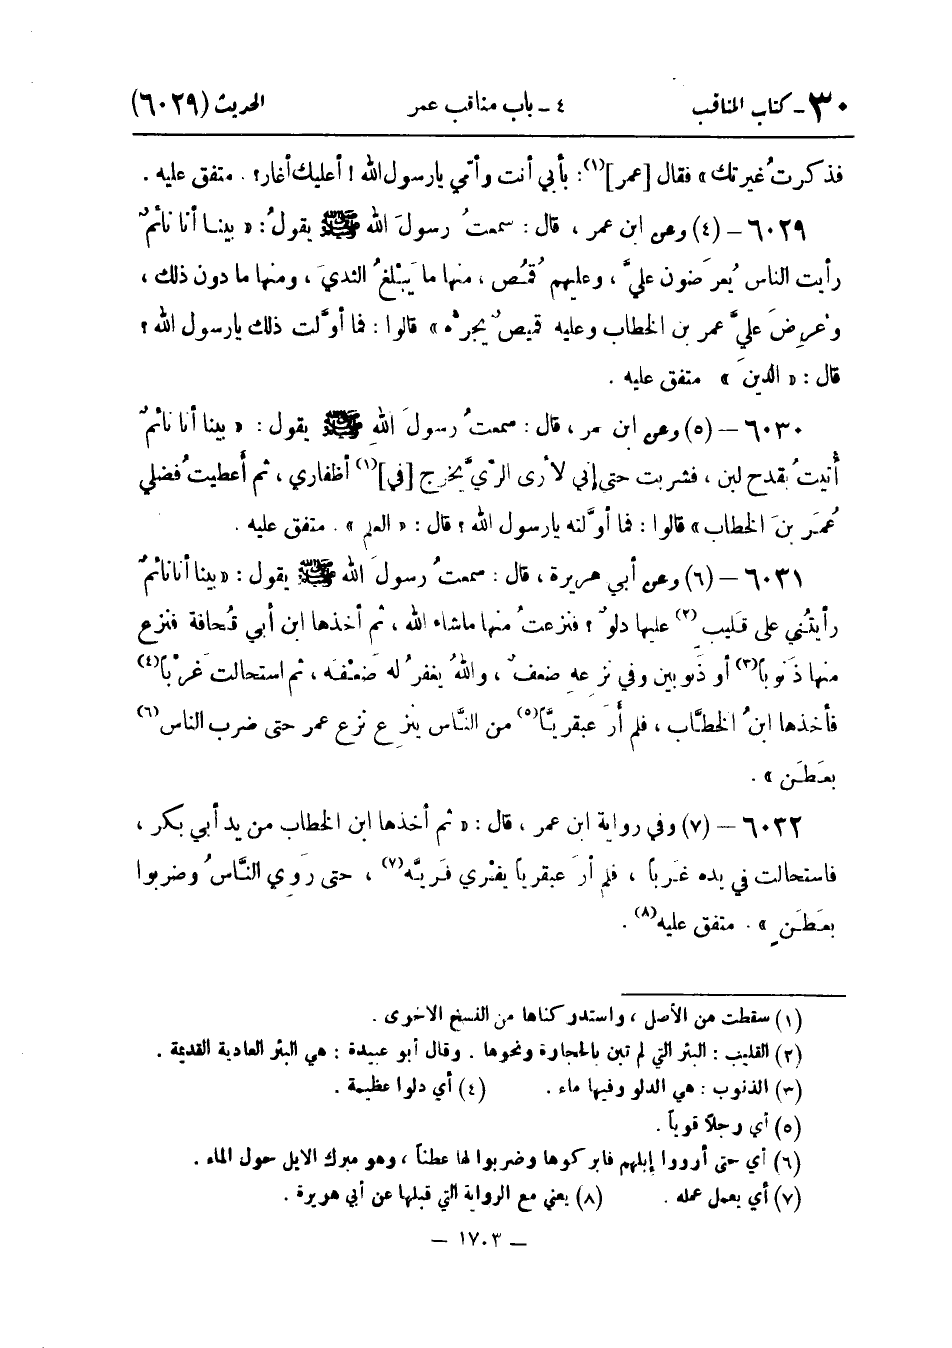 ٣٠ - كتاب المناقب ٤ - باب مناقب عمر الحديث (٦٠٢٩)
فذكرتُ غيرتك» فقال [عمر](١): بأبي أنت وأمّي يارسول الله ! أعليك أغار؟ . متفق عليه .
٦٠٢٩ – (٤) وعن ابن عمر ، قال : سمعتُ رسولَ الله ﷺ يقولُ: « بينا أنا نائمٌ
رأيت الناس يُعرَضون عليَّ ، وعليهم قُمُص ، منها ما يَبْلغُ الثديَ ، ومنها ما دون ذلك ،
وعُرِضَ عليَّ عمر بن الخطاب وعليه قميصٌ يجرُّه » قالوا : فما أوَّلت ذلك يارسول الله ؟
قال : « الدينَ » متفق عليه .
٦٠٣٠ – (٥) وعن ابن عمر ، قال : سمعتُ رسولَ اللهِ ﷺ يقول : « بينا أنا نائمٌ
أُتيتُ بقدح لبن ، فشربت حتى إني لأرى الرِّيَّ يخرج [في](١) أظفاري ، ثم أَعطيتُ فضلي
عُمَر بنَ الخطاب» قالوا : فما أوَّلته يارسول الله ؟ قال : « العلم » . متفق عليه .
٦٠٣١ – (٦) وعن أبي هريرة ، قال : سمعتُ رسولَ الله ﷺ يقول : «بينا أنا نائمٌ
رأيتُني على قَليبٍ(٢) عليها دلوٌ ؟ فنزعتُ منها ماشاء الله ، ثم أخذها ابن أبي قُحافة فنزع
منها ذَنوباً(٣) أو ذَنوبين وفي نزعهِ ضعفٌ ، واللهُ يغفرُ له ضَعْفَه ، ثم استحالت غَرْباً(٤)
فأخذها ابنُ الخطَّاب ، فلم أرَ عبقريّاً(٥) من النَّاس ينزع نزع عمر حتى ضرب الناس(٦)
بعَطَن » .
٦٠٣٢ – (٧) وفي رواية ابن عمر ، قال : « ثم أخذها ابن الخطاب من يد أبي بكر ،
فاستحالت في يده غَرباً ، فلم أرَ عبقرياً يفْري فَريَّه(٧) ، حتى رَوِي النَّاسُ وضربوا
بعَطَنٍ » . متفق عليه(٨) .
(١) سقطت من الأصل ، واستدركناها من النسخ الاخرى .
(٢) القليب : البئر التي لم تبن بالحجارة ونحوها . وقال أبو عبيدة : هي البئر العادية القديمة .
(٣) الذنوب : هي الدلو وفيها ماء . (٤) أي دلوا عظيمة .
(٥) أي رجلاً قوياً .
(٦) أي حتى أرووا إبلهم فابركوها وضربوا لها عطناً ، وهو مبرك الابل حول الماء .
(٧) أي يعمل عمله . (٨) يعني مع الرواية التي قبلها عن أبي هريرة .
– ١٧٠٣ –